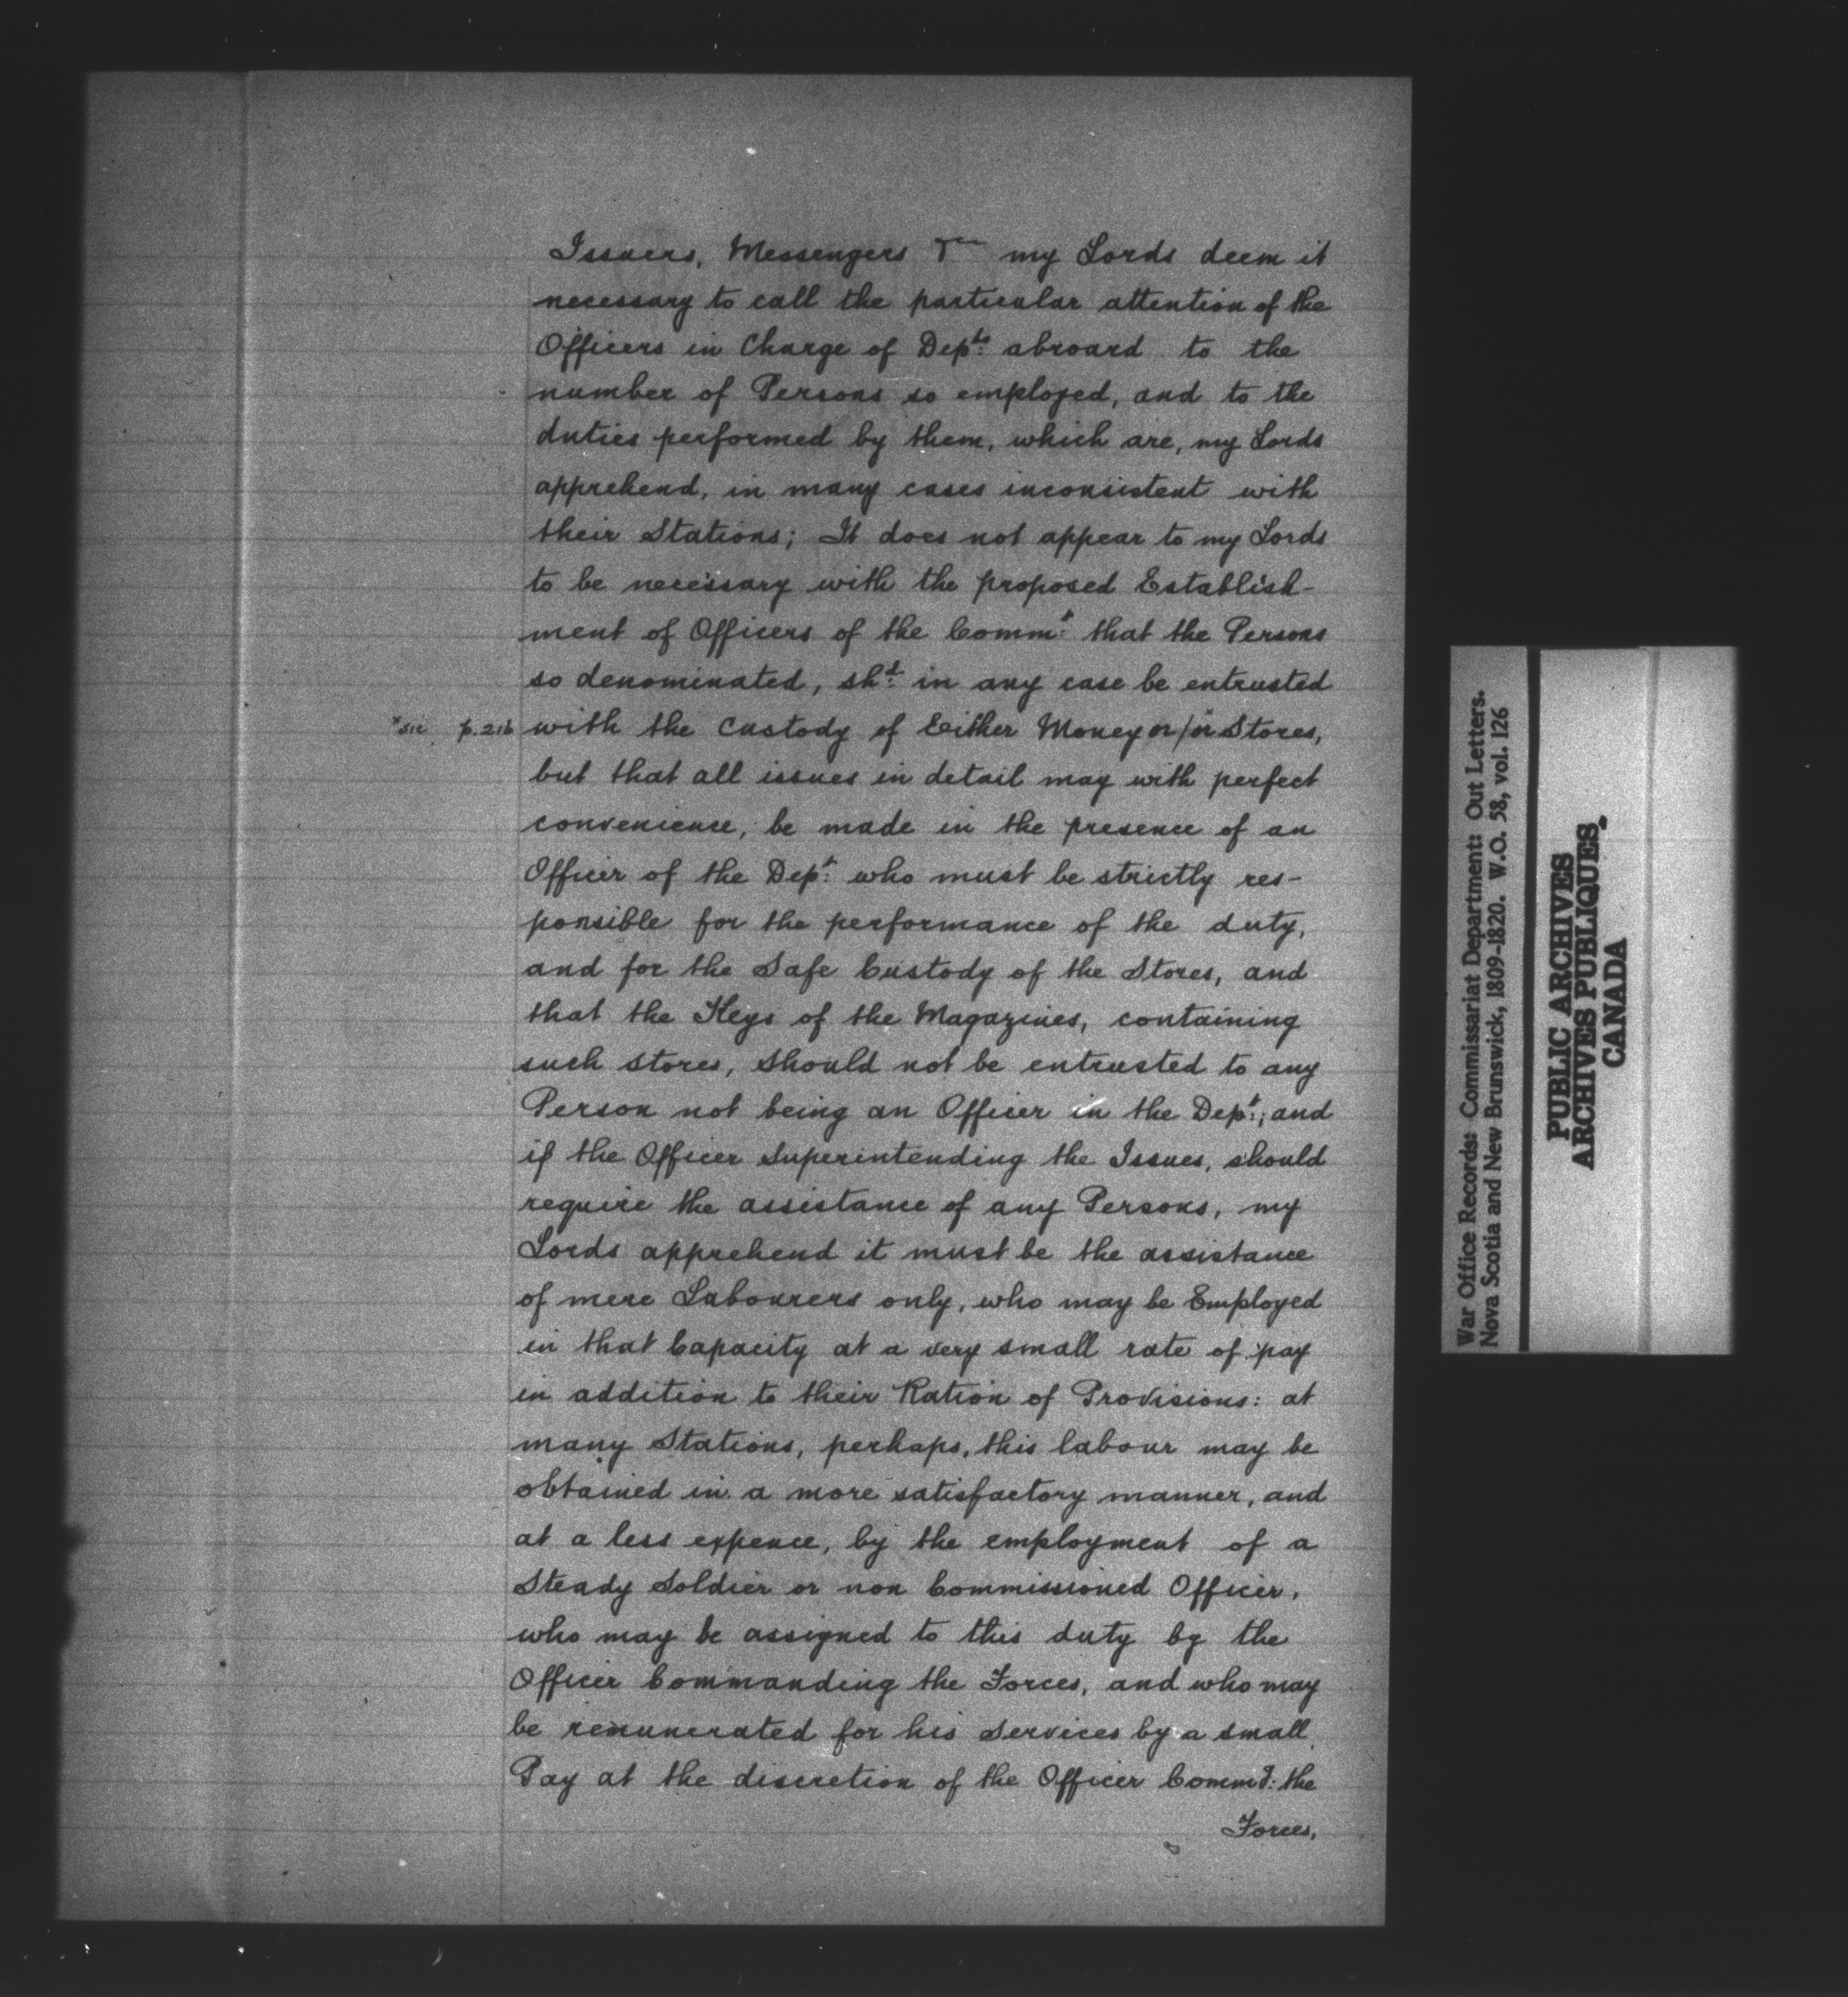 Issuers, Messengers &c my Lords deem it
necessary to call the particular attention of the
Officers in Charge of Depts: abroard to the
number of Persons so employed, and to the
duties performed by them, which are, my Lords
apprehend, in many cases inconsistent with
their Stations; It does not appear to my Lords
to be necessary with the proposed Establish-
ment of Officers of the Commt: that the Persons
so denominated, shd: in any case be entrusted
*sic p. 216 with the Custody of Either Money or /or* Stores,
but that all issues in detail may with perfect
convenience, be made in the presence of an
Officer of the Dept: who must be strictly res-
ponsible for the performance of the duty,
and for the Safe Custody of the Stores, and
that the Keys of the Magazines, containing
such stores, should not be entrusted to any
Person not being an Officer in the Dept:; and
if the Officer Superintending the Issues, should
require the assistance of any Persons, my
Lords apprehend it must be the assistance
of mere Labourers only, who may be Employed
in that Capacity at a very small rate of pay
in addition to their Ration of Provisions: at
many Stations, perhaps, this labour may be
obtained in a more satisfactory manner, and
at a less expence, by the employment of a
Steady Soldier or non Commissioned Officer,
who may be assigned to this duty by the
Officer Commanding the Forces, and who may
be renunerated for his Services by a small
Pay at the discretion of the Officer Commd: the
Forces,
War Office Records: Commissariat Department: Out Letters.
Nova Scotia and New Brunswick, 1809-1820. W.O. 58, vol. 126
PUBLIC ARCHIVES
ARCHIVES PUBLIQUES
CANADA